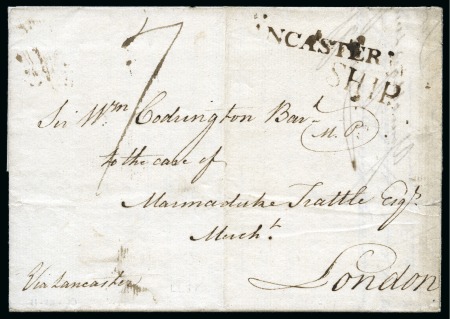 NCASTER
SHIP
7
Sir Wm Codrington Bart
M. P.
to the care of
Marmaduke Trattle Esqr
Mercht.
Via Lancaster
London